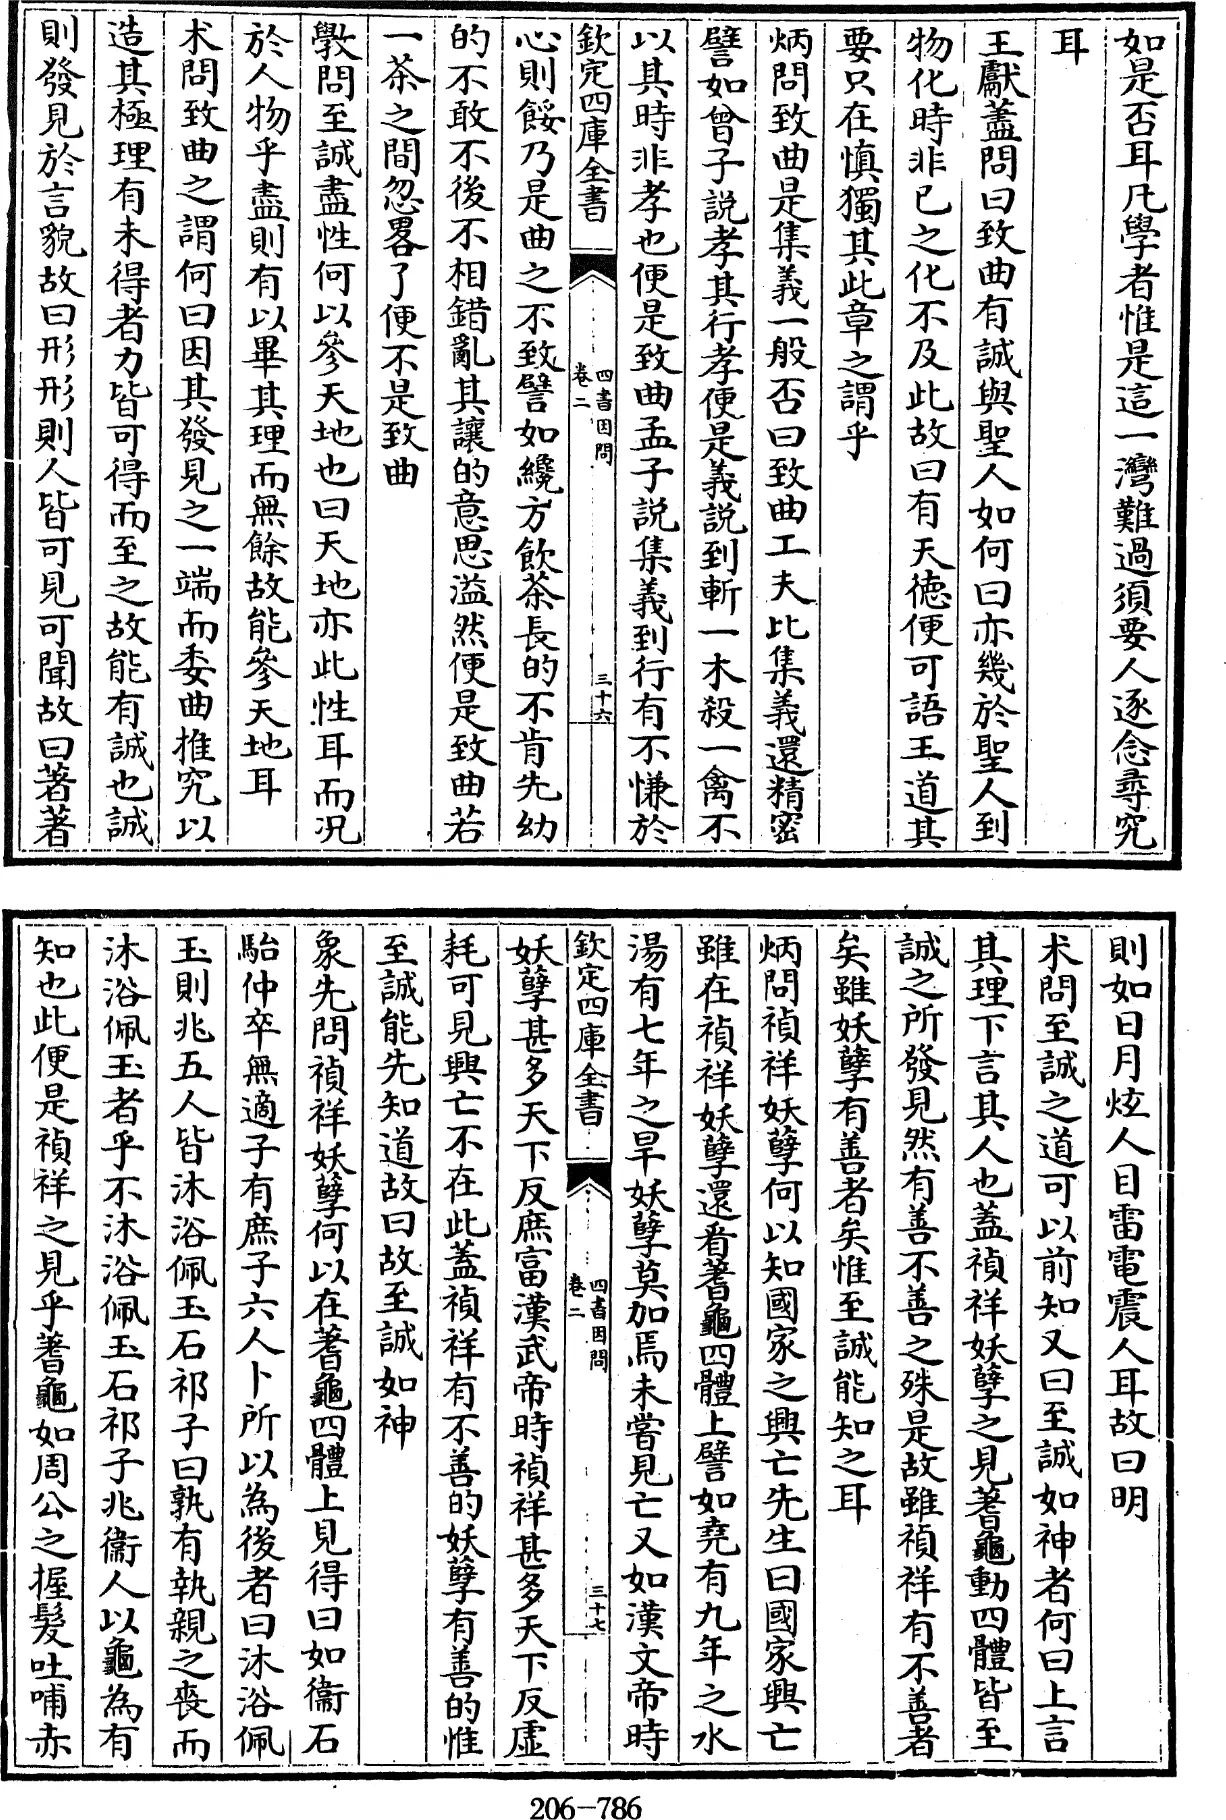 如是否耳凡學者惟是這一灣難過須要人逐念尋究
耳
王獻蓋問曰致曲有誠與聖人如何曰亦幾於聖人到
物化時非已之化不及此故曰有天德便可語王道其
要只在慎獨其此章之謂乎
炳問致曲是集義一般否曰致曲工夫比集義還精密
譬如曾子説孝其行孝便是義説到斬一木殺一禽不
以其時非孝也便是致曲孟子説集義到行有不慊於
欽定四庫全書
四書因問
卷二
三十六
心則餒乃是曲之不致譬如纔方飲茶長的不肯先幼
的不敢不後不相錯亂其讓的意思溢然便是致曲若
一茶之間忽畧了便不是致曲
斆問至誠盡性何以參天地也曰天地亦此性耳而况
於人物乎盡則有以畢其理而無餘故能參天地耳
术問致曲之謂何曰因其發見之一端而委曲推究以
造其極理有未得者力皆可得而至之故能有誠也誠
則發見於言貌故曰形形則人皆可見可聞故曰著著
則如日月炫人目雷電震人耳故曰明
术問至誠之道可以前知又曰至誠如神者何曰上言
其理下言其人也蓋禎祥妖孽之見蓍龜動四體皆至
誠之所發見然有善不善之殊是故雖禎祥有不善者
矣雖妖孽有善者矣惟至誠能知之耳
炳問禎祥妖孽何以知國家之興亡先生曰國家興亡
雖在禎祥妖孽還看蓍龜四體上譬如堯有九年之水
湯有七年之旱妖孽莫加焉未嘗見亡又如漢文帝時
欽定四庫全書
四書因問
卷二
三十七
妖孽甚多天下反庶富漢武帝時禎祥甚多天下反虚
耗可見興亡不在此蓋禎祥有不善的妖孽有善的惟
至誠能先知道故曰故至誠如神
象先問禎祥妖孽何以在蓍龜四體上見得曰如衞石
駘仲卒無適子有庶子六人卜所以為後者曰沐浴佩
玉則兆五人皆沐浴佩玉石祁子曰孰有執親之喪而
沐浴佩玉者乎不沐浴佩玉石祁子兆衞人以龜為有
知也此便是禎祥之見乎蓍龜如周公之握髮吐哺赤
206-786